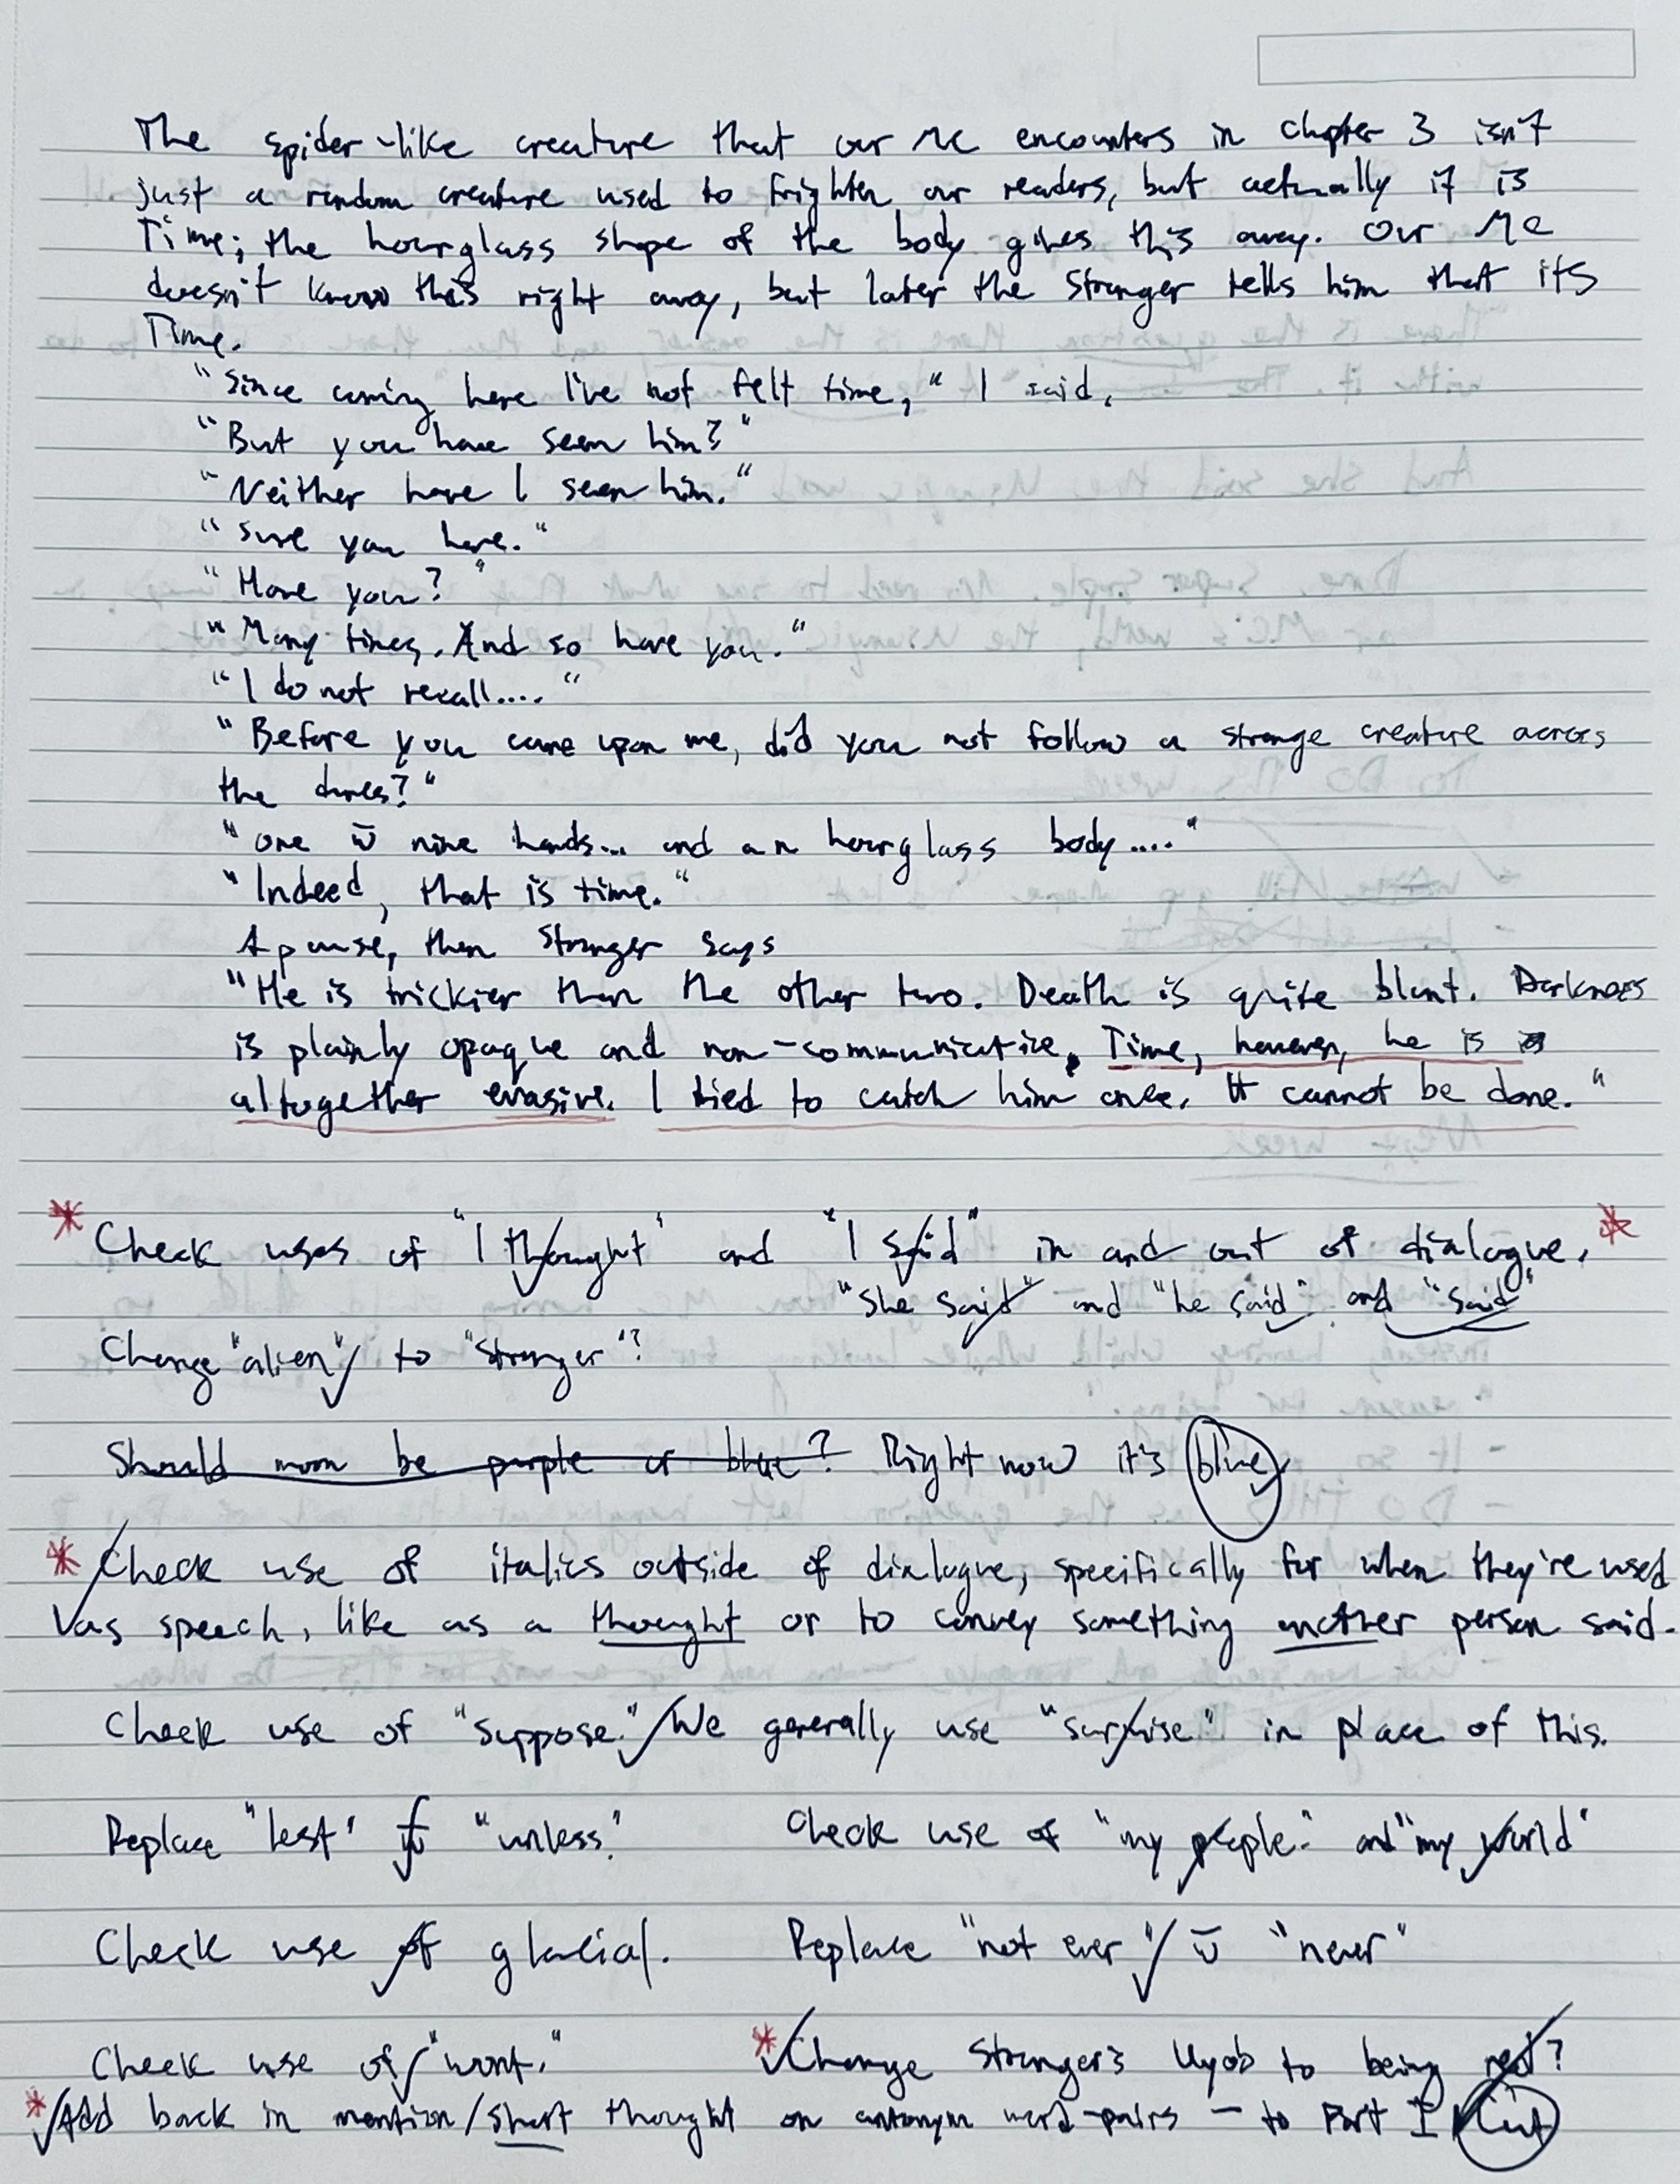 The spider-like creature that our MC encounters in chapter 3 isn't
just a random creature used to frighten our readers, but actually it is
Time; the hourglass shape of the body gives this away. Our MC
doesn't know this right away, but later the Stranger tells him that its
Time.
"Since coming here I've not felt time," I said.
"But you have seen him?"
"Neither have I seen him."
"Sure you have."
"Have you?"
"Many times. And so have you."
"I do not recall...."
"Before you came upon me, did you not follow a strange creature across
the dunes?"
"One w̄ nine hands... and an hourglass body...."
"Indeed, that is time."
A pause, then Stranger says
"He is trickier than the other two. Death is quite blunt. Darkness
is plainly opaque and non-communicative. Time, however, he is
altogether evasive. I tried to catch him once. It cannot be done."
* Check uses of "I thought" and "I said" in and out of dialogue. *
"She said" and "he said" and "said"
Change "alien" to "Stranger"?
Should moon be purple or blue? Right now it's blue
* Check use of italics outside of dialogue, specifically for when they're used
as speech, like as a thought or to convey something another person said.
Check use of "suppose." We generally use "surmise" in place of this.
Replace "lest" w̄ "unless." Check use of "my people" and "my world"
Check use of glacial. Replace "not ever" w̄ "never"
Check use of "wont." * Change Stranger's Uyob to being red?
* Add back in mention/short thought on antonym word-pairs – to Part I Cut